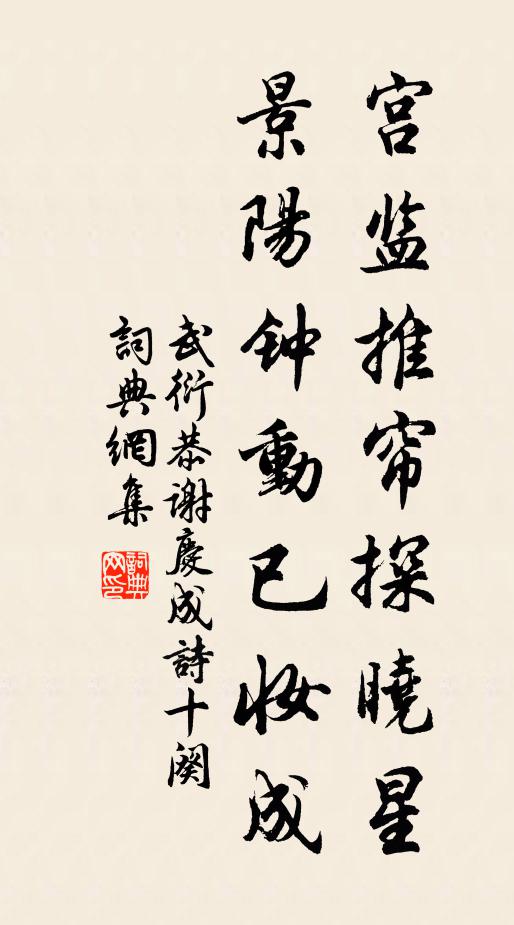 宫监推帘探曉星
景陽钟動已妆成
武衍恭谢慶成詩十阕
詞典網集
詞典網印